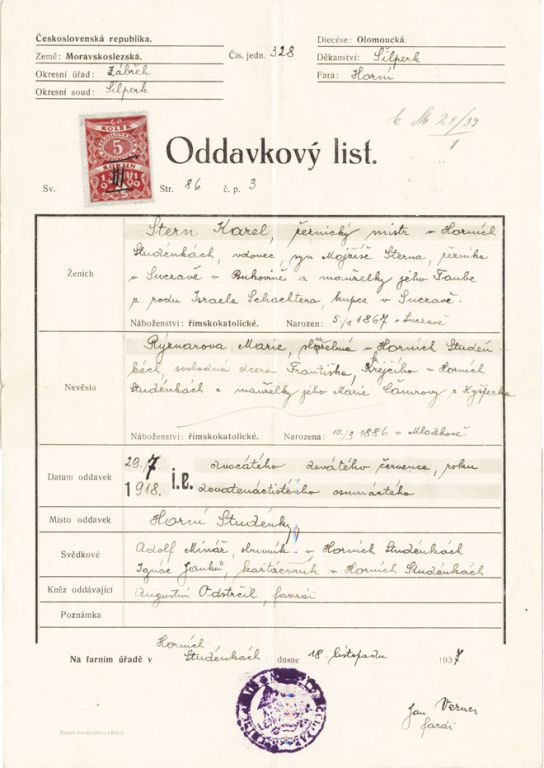 Československá republika.
Země: Moravskoslezská.
Okresní úřad: Zábřeh
Okresní soud: Šilperk
Čís. jedn. 328
Diecése: Olomoucká.
Děkanství: Šilperk
Fara: Horní
21/39
1
KOLEK
5
Oddavkový list.
Sv. Str. 86 č. p. 3
Ženich
Stern Karel, řeznický mistr v Horních
Studénkách, vdovec, syn Mojžíše Sterna, řezníka
v Sucravě v Bukovině a manželky jeho Taube
z rodu Israele Schachtera, kupce v Sucravě.
Náboženství: římskokatolické. Narozen: 5/1 1867 v Sucravě
Nevěsta
Marie, v Horních Studén-
kách, svobodná dcera Františka Krejčího v Horních
Studénkách a manželky jeho Marie
Náboženství: římskokatolické. Narozena: 10/3 1886 v
Datum oddavek
29. 7
1918. i.e.
devátého července, roku
osmnáctého
Místo oddavek
Horní Studénky
Svědkové
Adolf Minář, v Horních Studénkách
Ignác Janků, kartáčník v Horních Studénkách
Kněz oddávající
Augustin Odstrčil, farář
Poznámka
Na farním úřadě v Horních
Studénkách dne 18. listopadu 1937
Jan Verner
farář